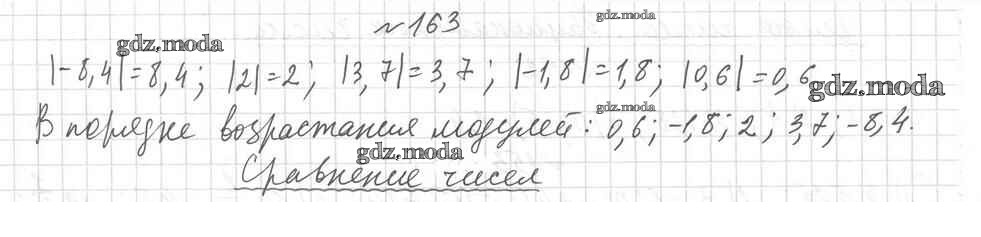 №163
gdz.moda
gdz.moda
|-8,4|=8,4; |2|=2; |3,7|=3,7; |-1,8|=1,8; |0,6|=0,6
gdz.moda
gdz.moda
В порядке возрастания модулей: 0,6; -1,8; 2; 3,7; -8,4.
gdz.moda
Сравнение чисел